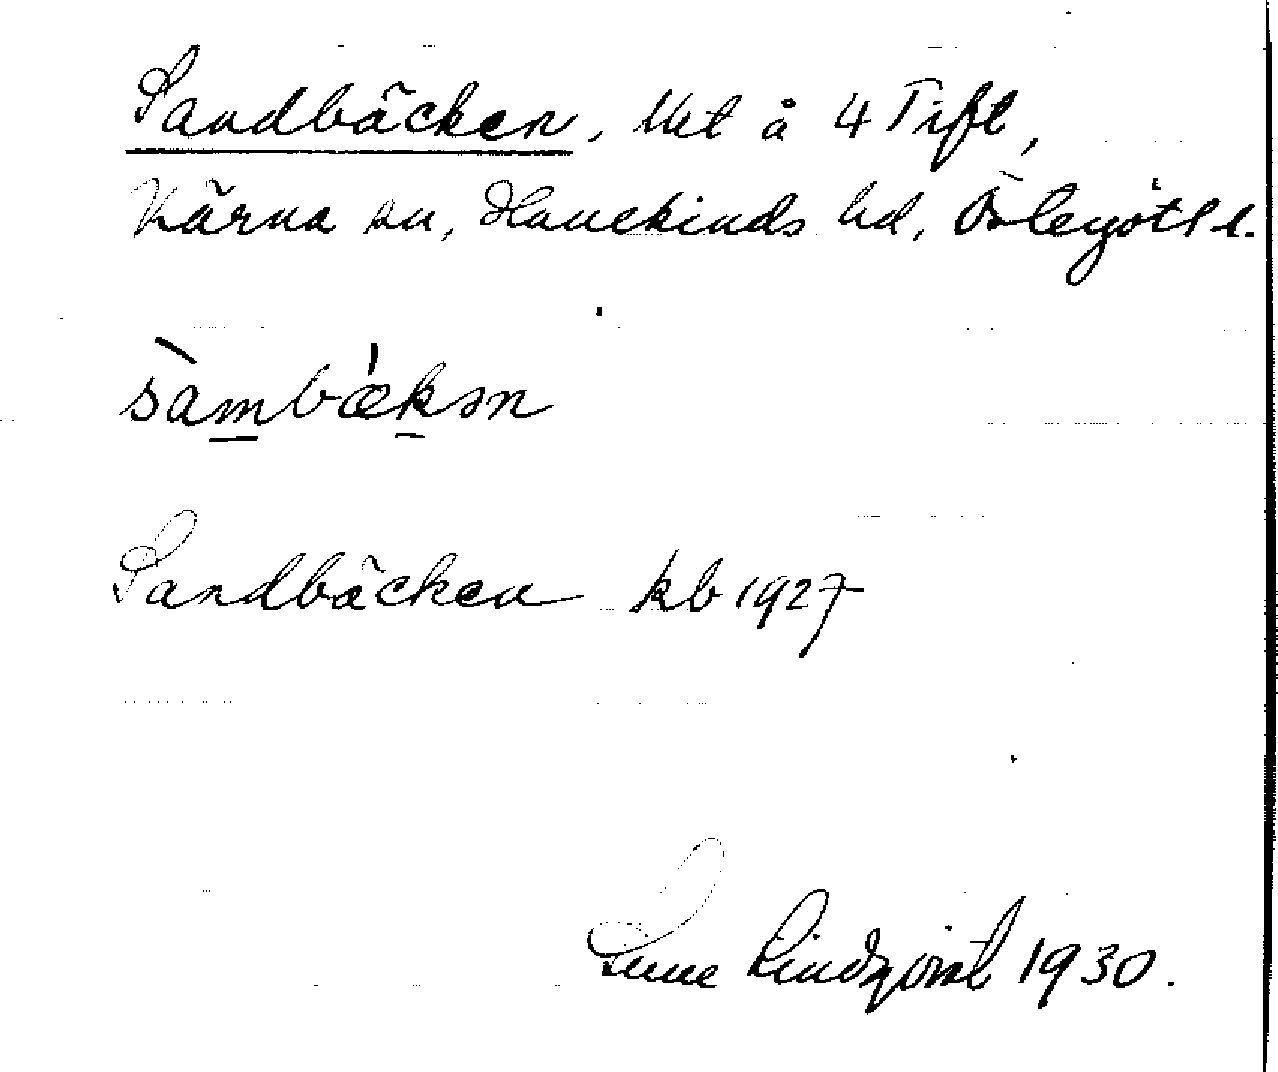 Sandbäcken, lht å 4 Tift,
Kärna sn, Hanekinds hd, Östergötl l.
sàmbækən
Sandbäcken kb 1927
Sune Lindqvist 1930.